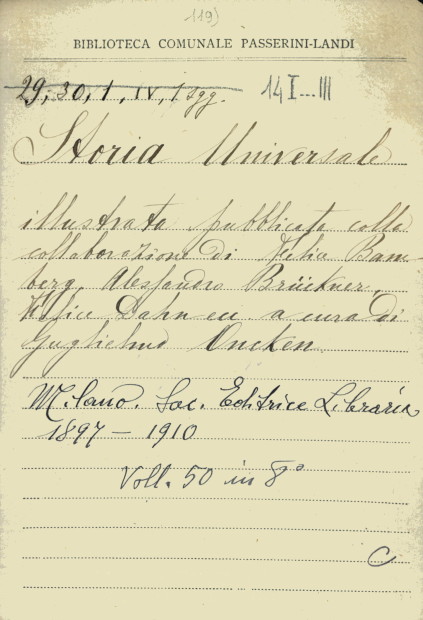 119)
BIBLIOTECA COMUNALE PASSERINI-LANDI
29, 30, 1, IV, 1 sgg. 14 I...III
Storia Universale
illustrata pubblicata colla
collaborazione di Felix Bam-
berg, Alessandro Brückner,
Felice Dahn ecc. a cura di
Guglielmo Oncken
Milano. Soc. Editrice Libraria
1897 - 1910
Voll. 50 in 8°
C